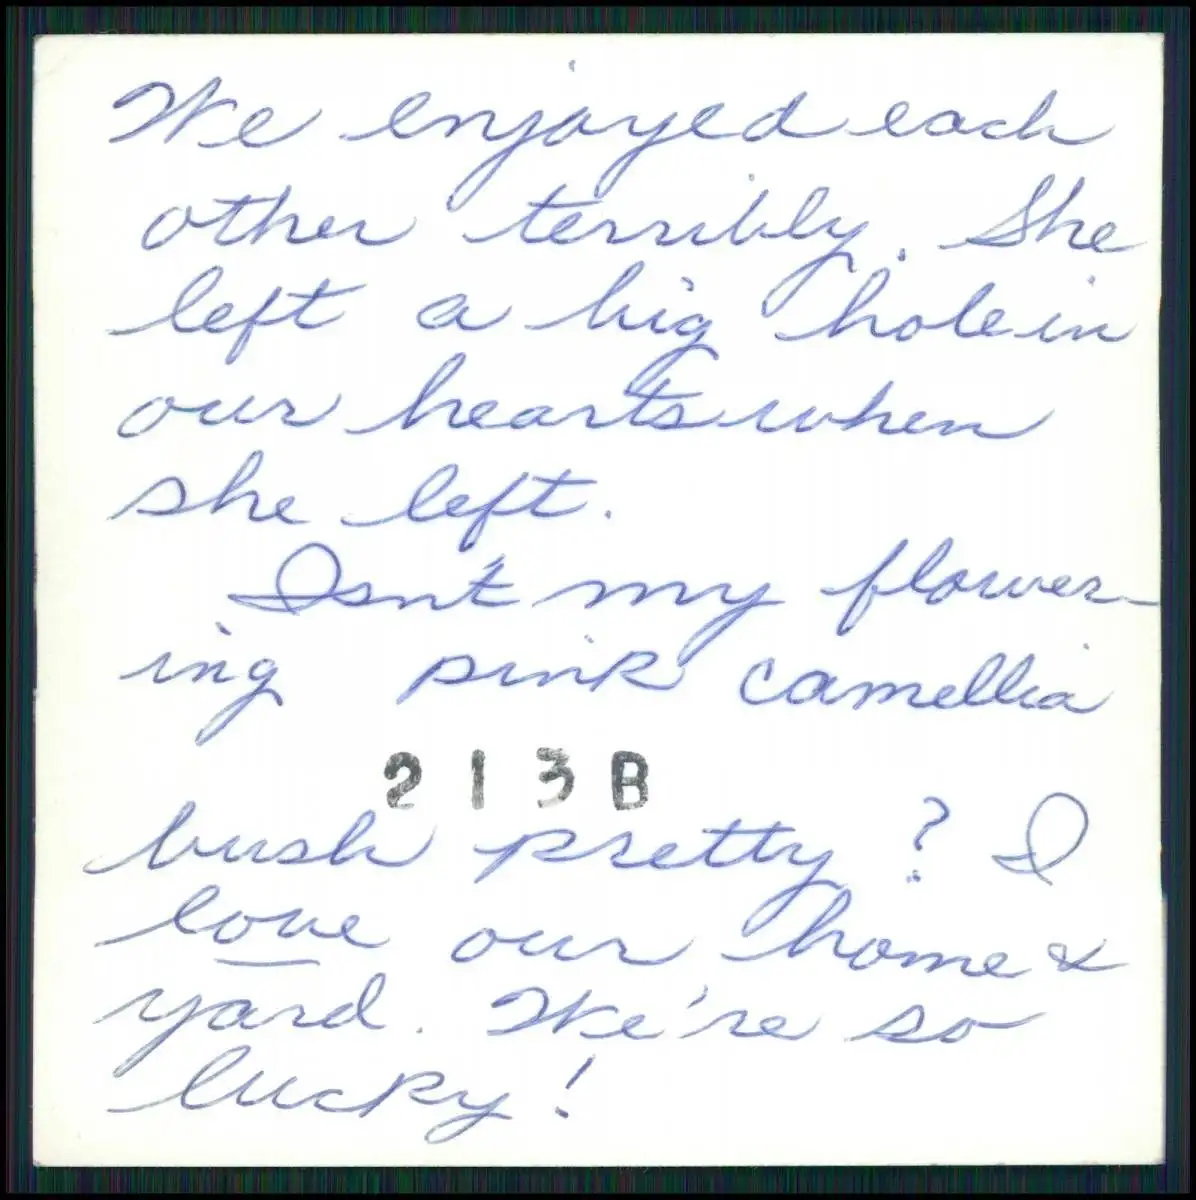 We enjoyed each
other terribly. She
left a big hole in
our hearts when
she left.
Isn't my flower-
ing pink camellia
213B
bush pretty? I
love our home &
yard. We're so
lucky!